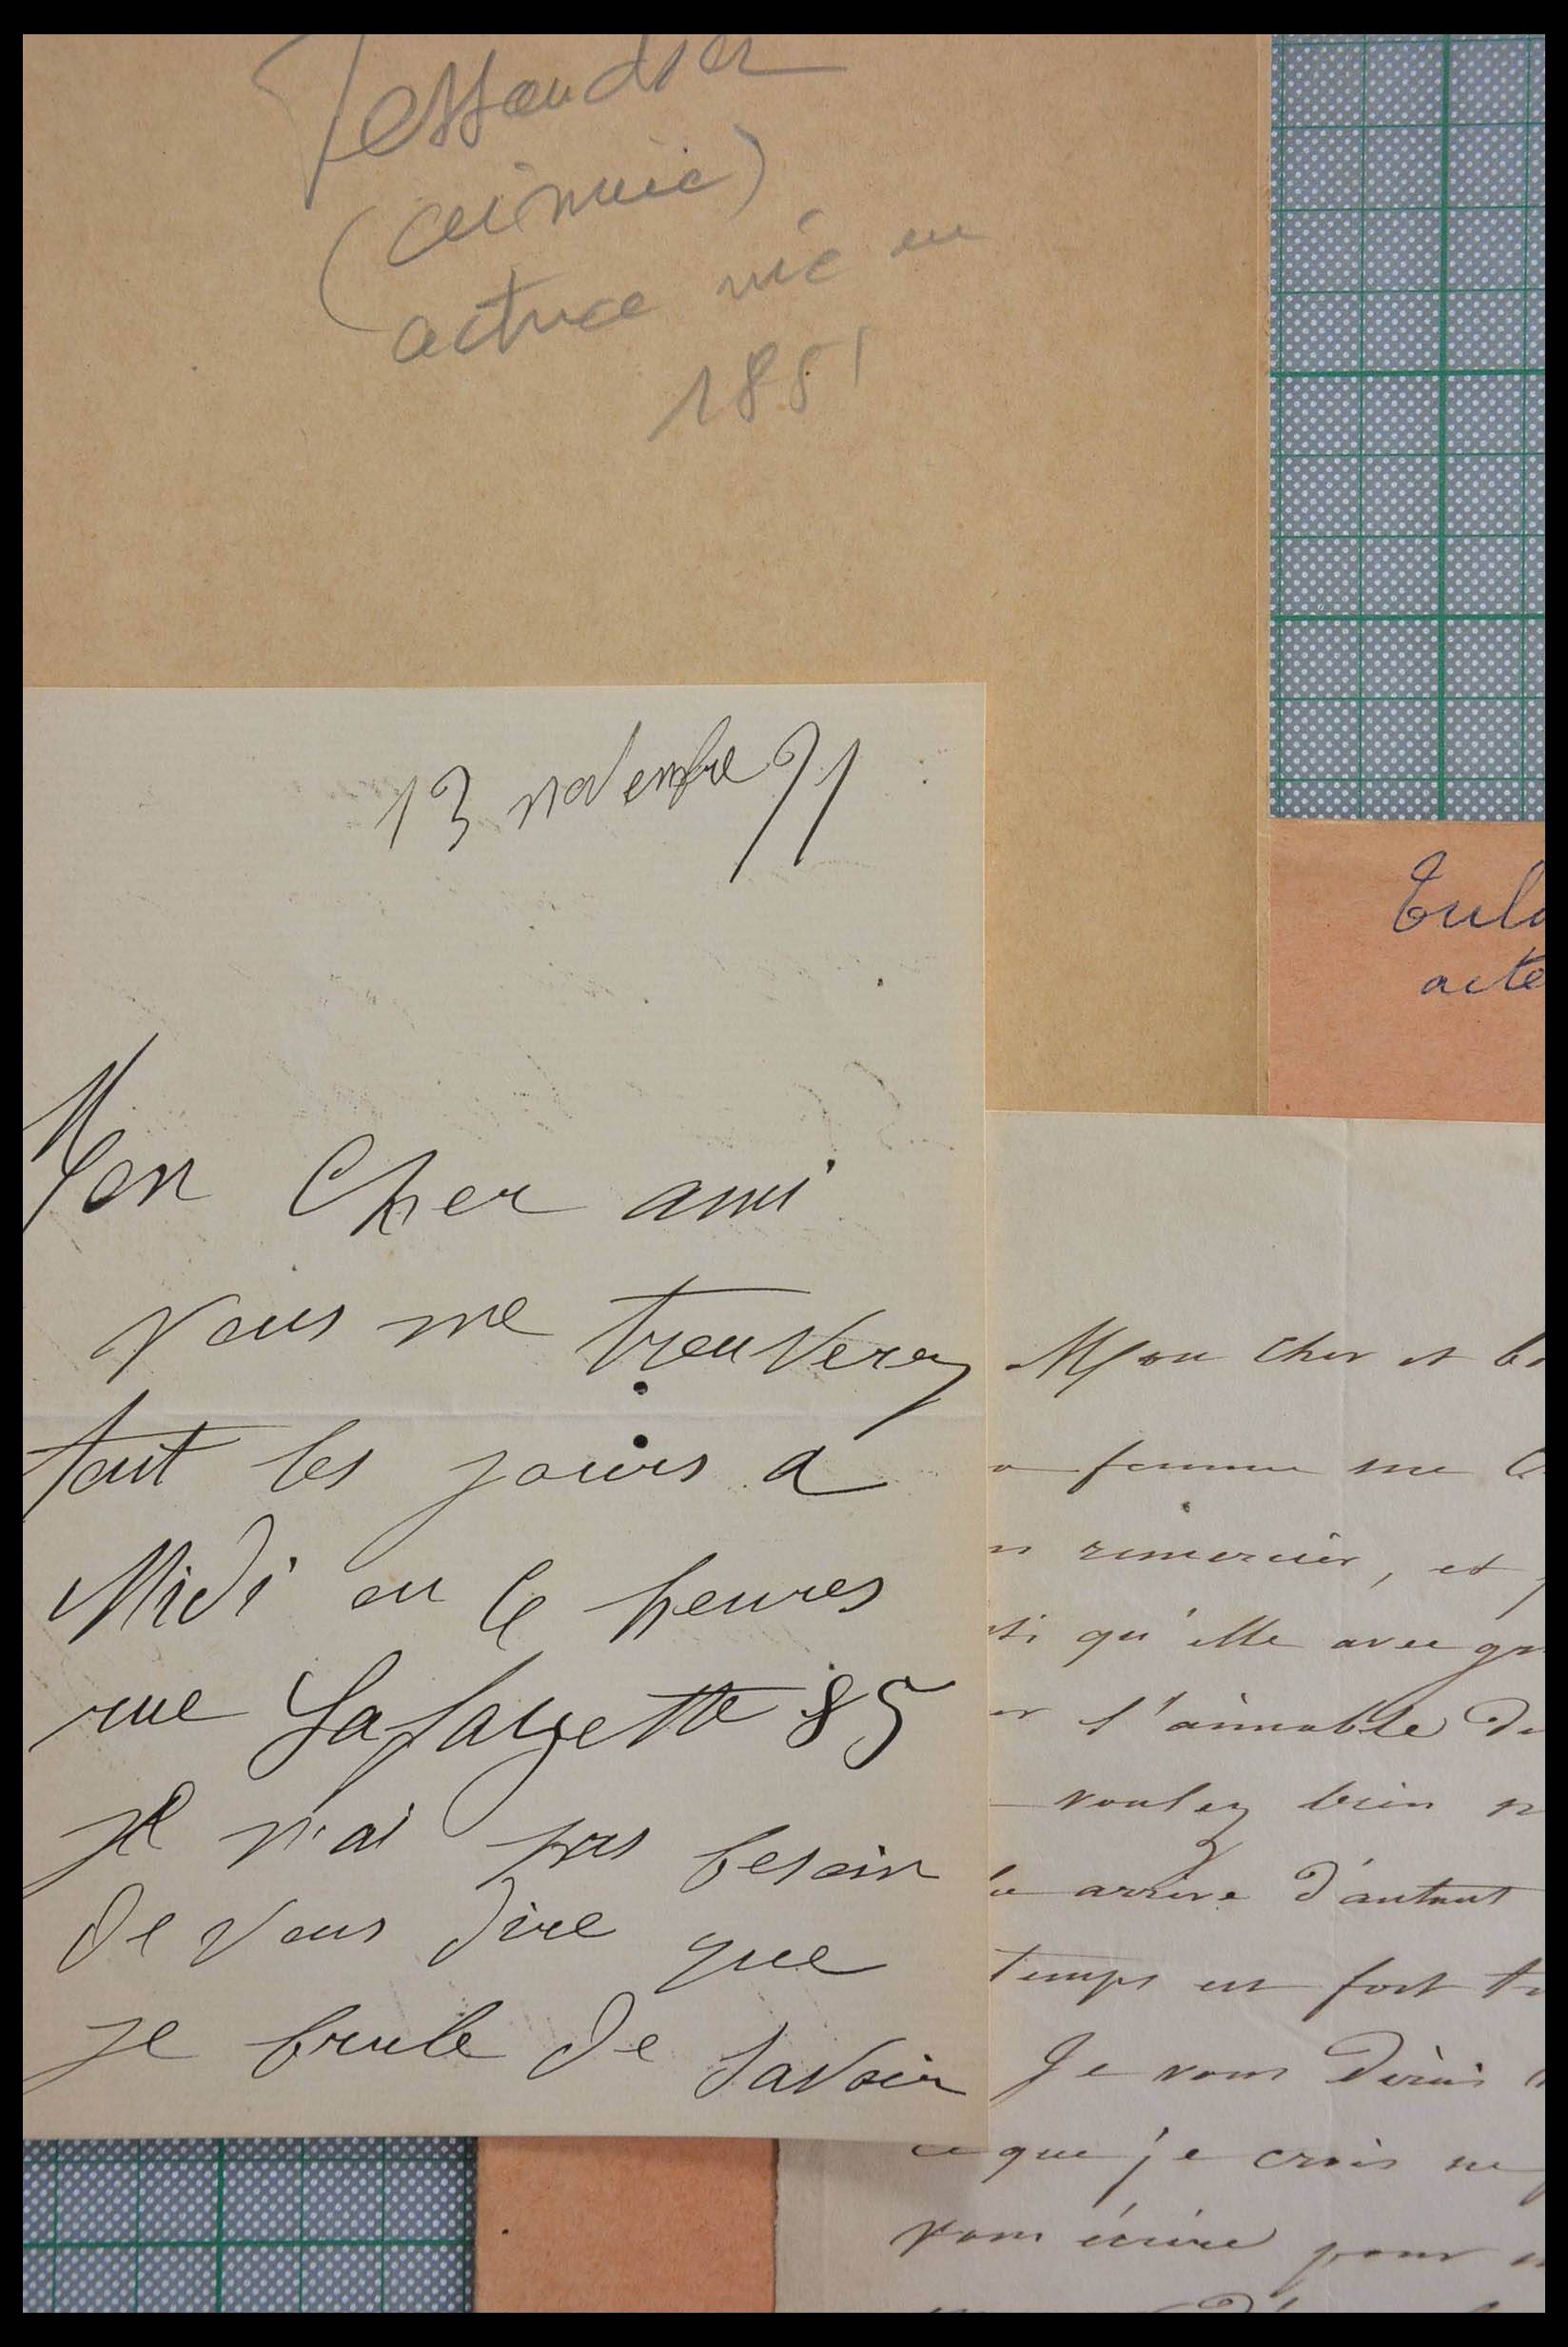 Tessandier
(Aimée)
actrice née en
1851
13 novembre 71
Mon Cher ami
Vous me trouverez
tout les jours a
Midi ou 6 heures
rue Lafayette 85
je n'ai pas besoin
de vous dire que
je brule de savoir
acte
Mon cher et
femme me
remercier, et
qu'elle avec
l'aimable
voulez bien
arrive d'autant
temps est fort
Je vous dirais
ce que je crois ne
vous écrire pour